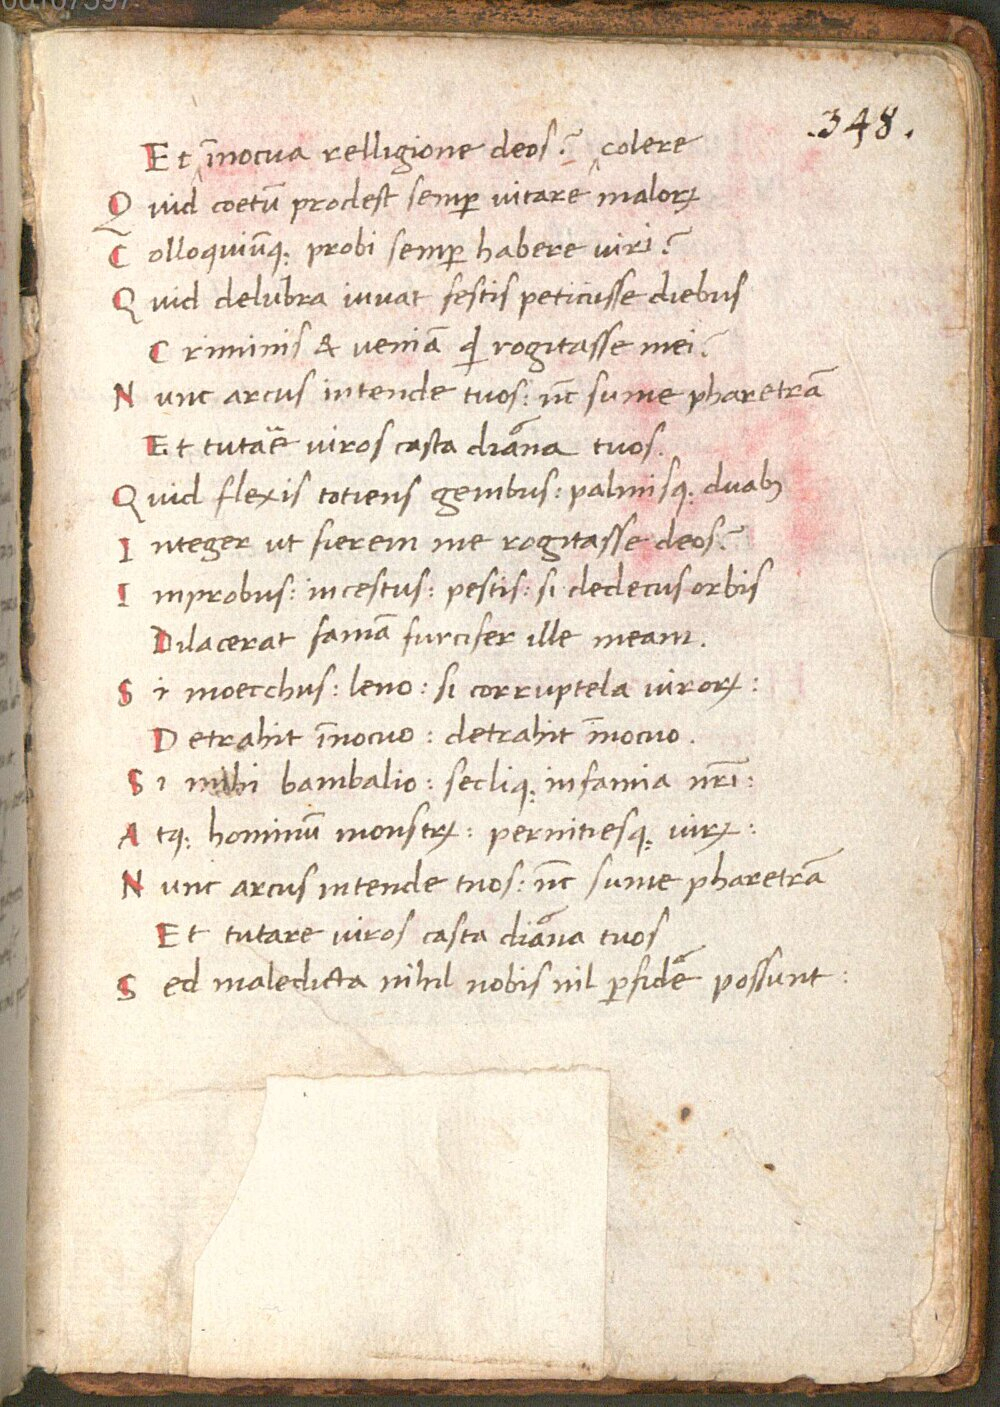 .348.
Et īnocua relligione deos? colere
Quid coetū prodest semꝑ uitare malorꝝ
Colloquiūq; probi semꝑ habere uiri?
Quid delubra iuuat festis peticisse diebus
Criminis & ueniā qͥ rogitasse mei?
Nunc arcus intende tuos: nc̄ sume pharetrā
Et tutare uiros casta diāna tuos.
Quid flexis totiens genibus: palmisq; duabꝫ
Integer ut fierem me rogitasse deos?
Improbus: incestus: pestis: si dedecus orbis
Dilacerat famā furcifer ille meam.
Si moecchus: leno: si corruptela uirorꝝ:
Detrahit īnocuo: detrahit īnocuo.
Si mihi bambalio: secliq; infamia nr̄i:
Atq; hominū monstrꝝ: pernitiesq; uirꝝ:
Nunc arcus intende tuos: nc̄ sume pharetrā
Et tutare uiros casta diāna tuos
Sed maledicta nihil nobis nil ꝑfidē possunt: